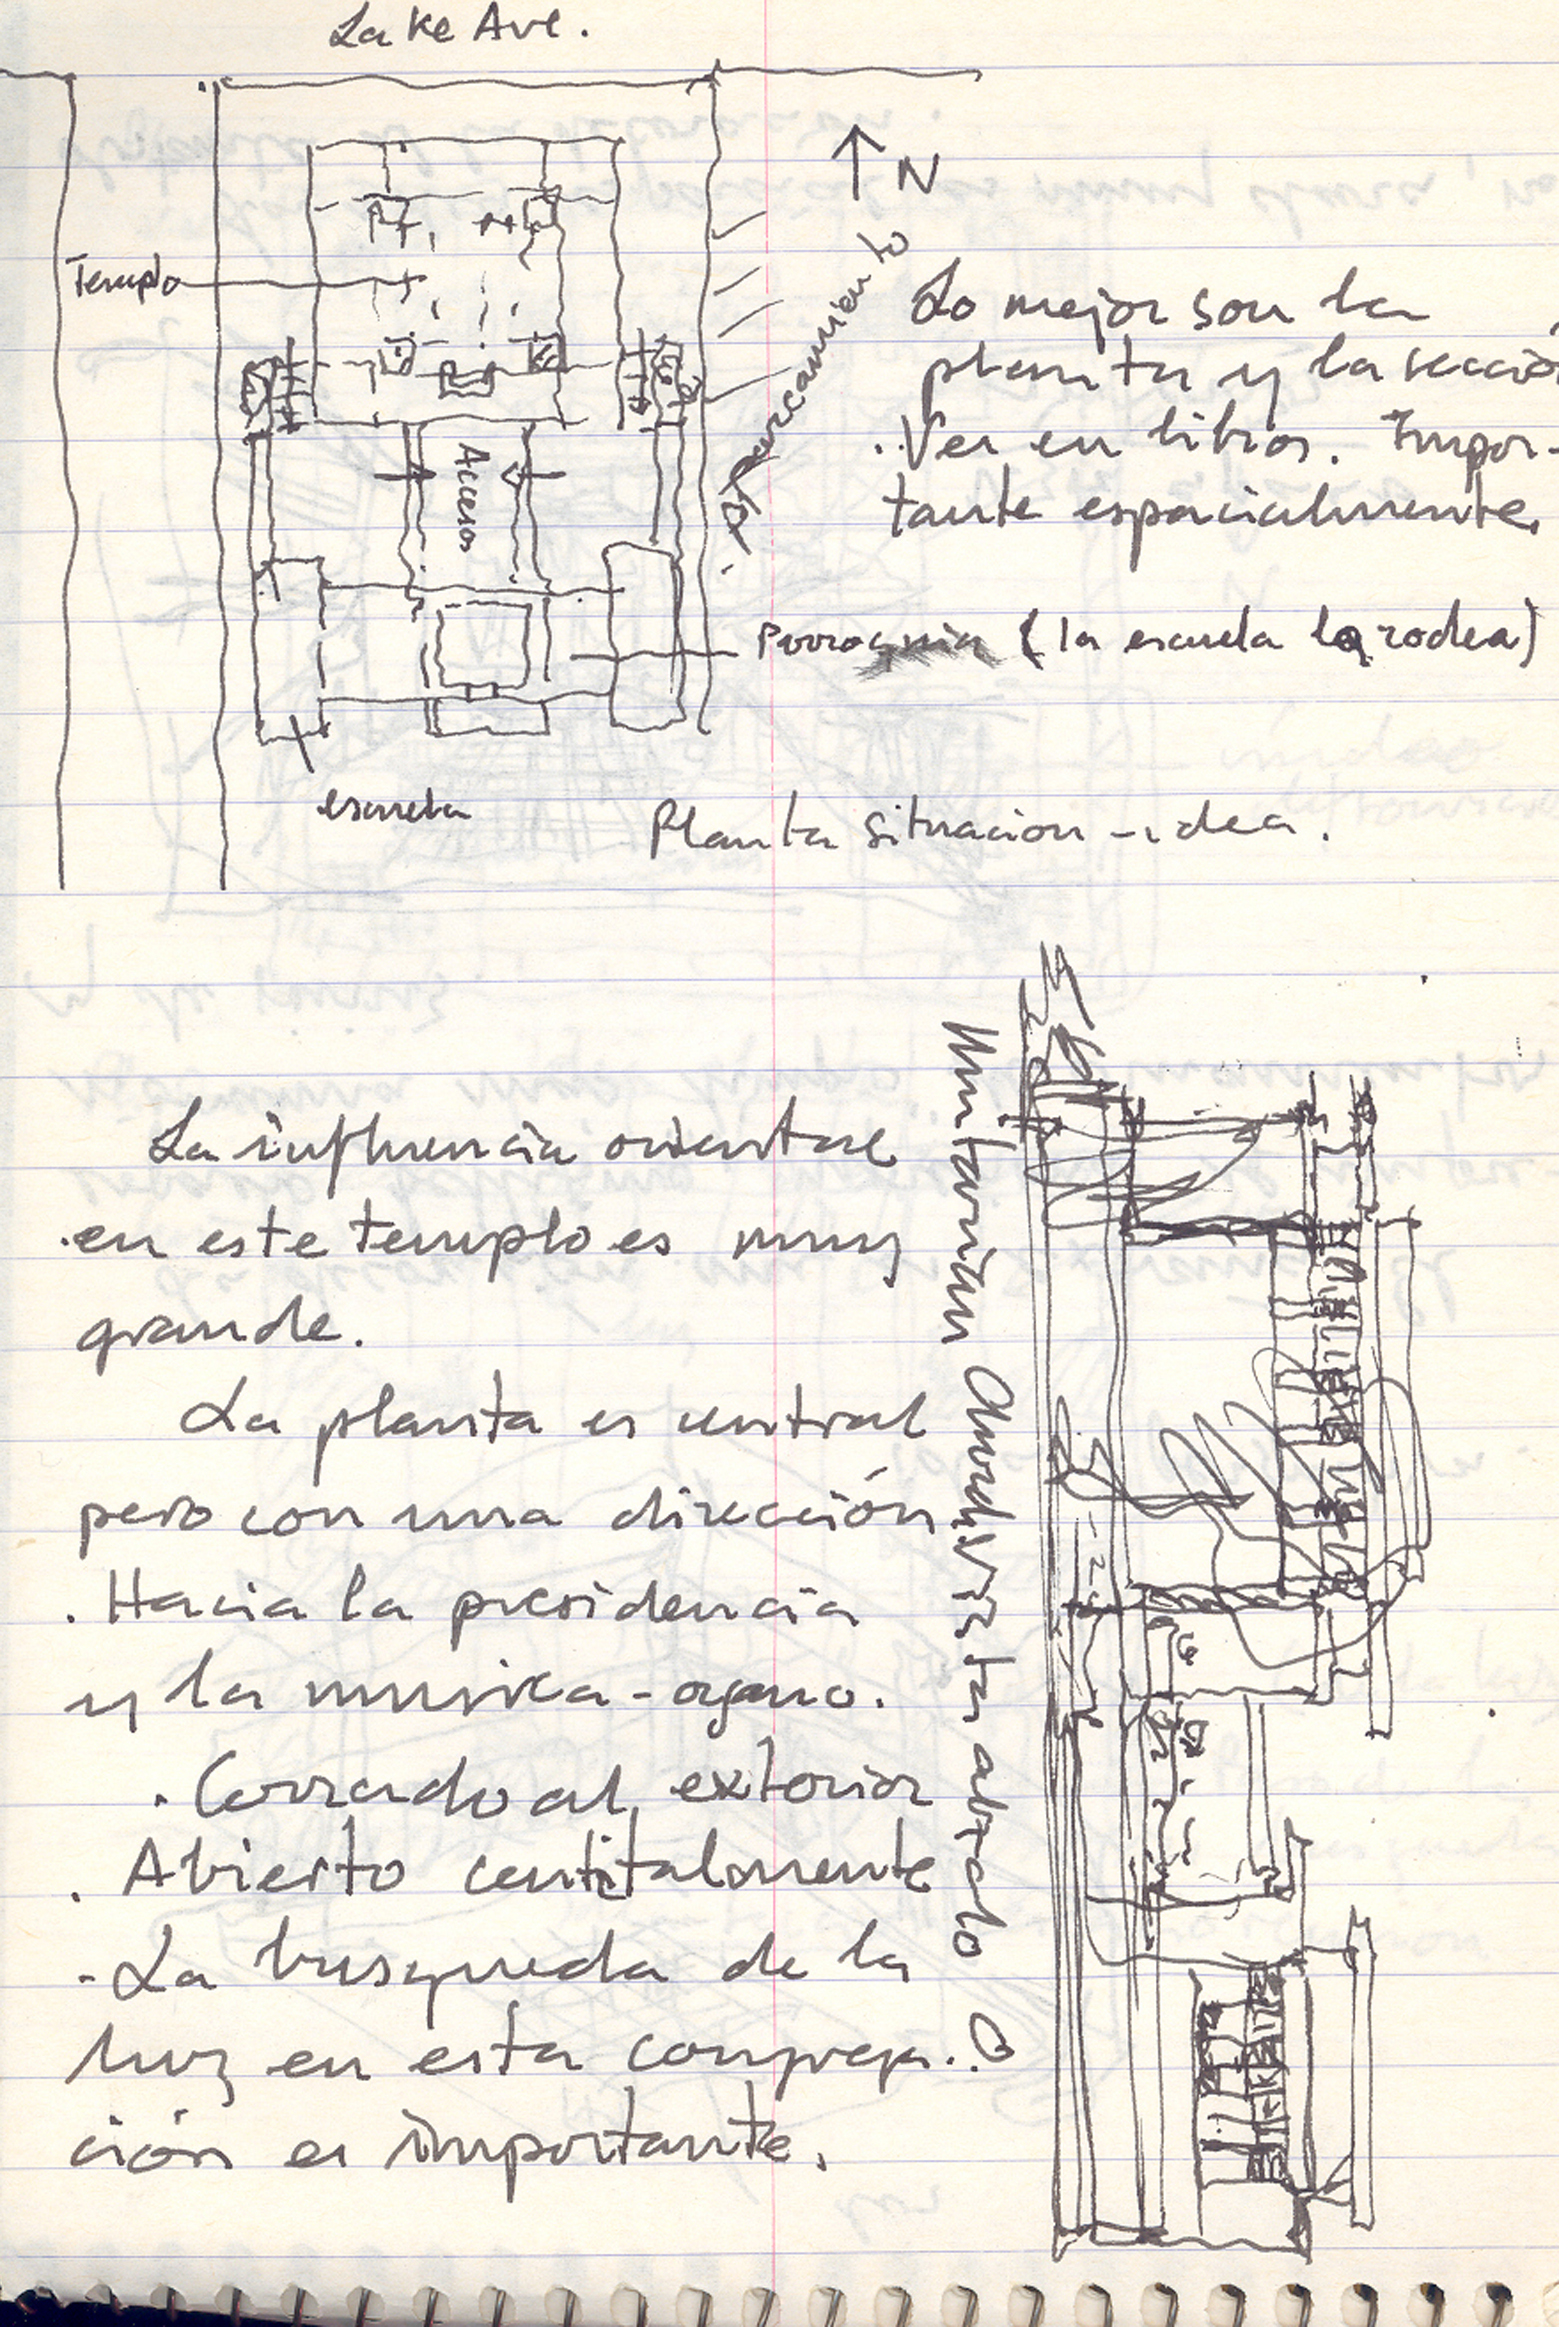 Lake Ave.
N
Templo
Aparcamiento
Lo mejor son la
planta y la sección
. Ver en libros. Impor-
tante espacialmente.
Accesos
Parroquia (la escuela la rodea)
escuela
Planta situacion - idea.
La influencia oriental
.en este templo es muy
grande.
La planta es central
pero con una dirección
. Hacia la presidencia
y la musica - organo.
. Cerrado al exterior
. Abierto centitalmente
- La busqueda de la
luz en esta congrega..
ción es importante.
Unitarian Church
alzado